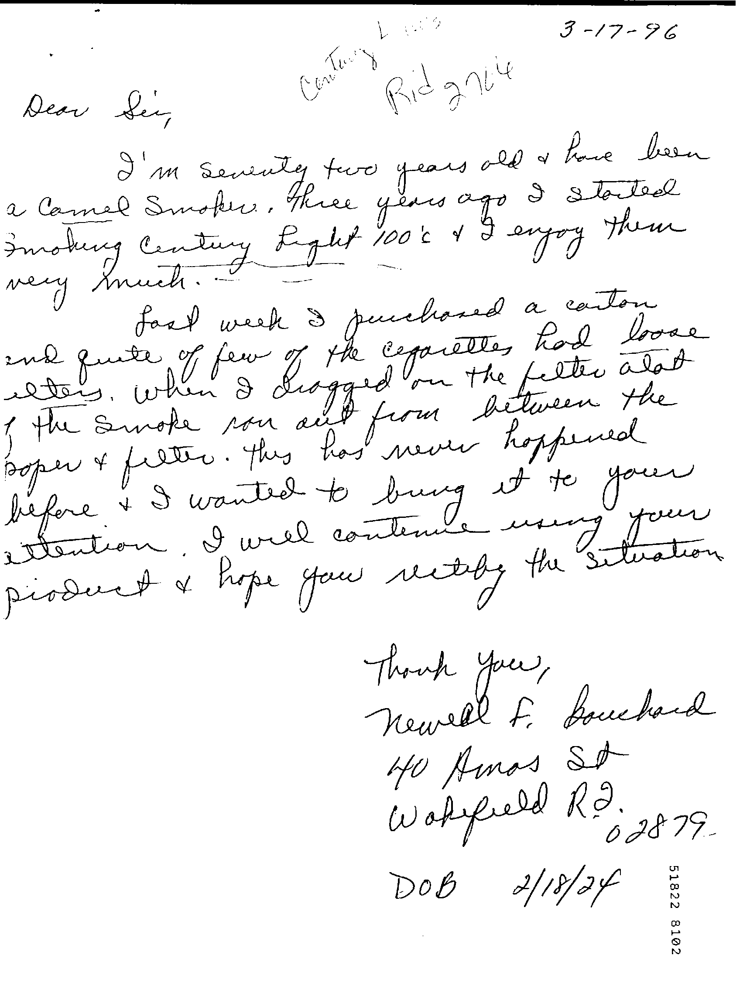 3-17-96
Century L
Rid 2764
Dear Sir,
I'm seventy two years old & have been
a Camel Smoker. Three years ago I started
Smoking Century Light 100's & I enjoy them
very much.
Last week I purchased a carton
and quite of few of the cegarettes had loose
ilters. When I dragged on the filter alot
f the smoke ran out from between the
paper & filter. This has never happened
before & I wanted to bring it to your
attention. I will continue using your
product & hope you rectify the situation
Thank You,
Newell F. Bouchard
40 Amos St
Wakefield R.I.
02879-
DOB 2/18/24
51822 8102